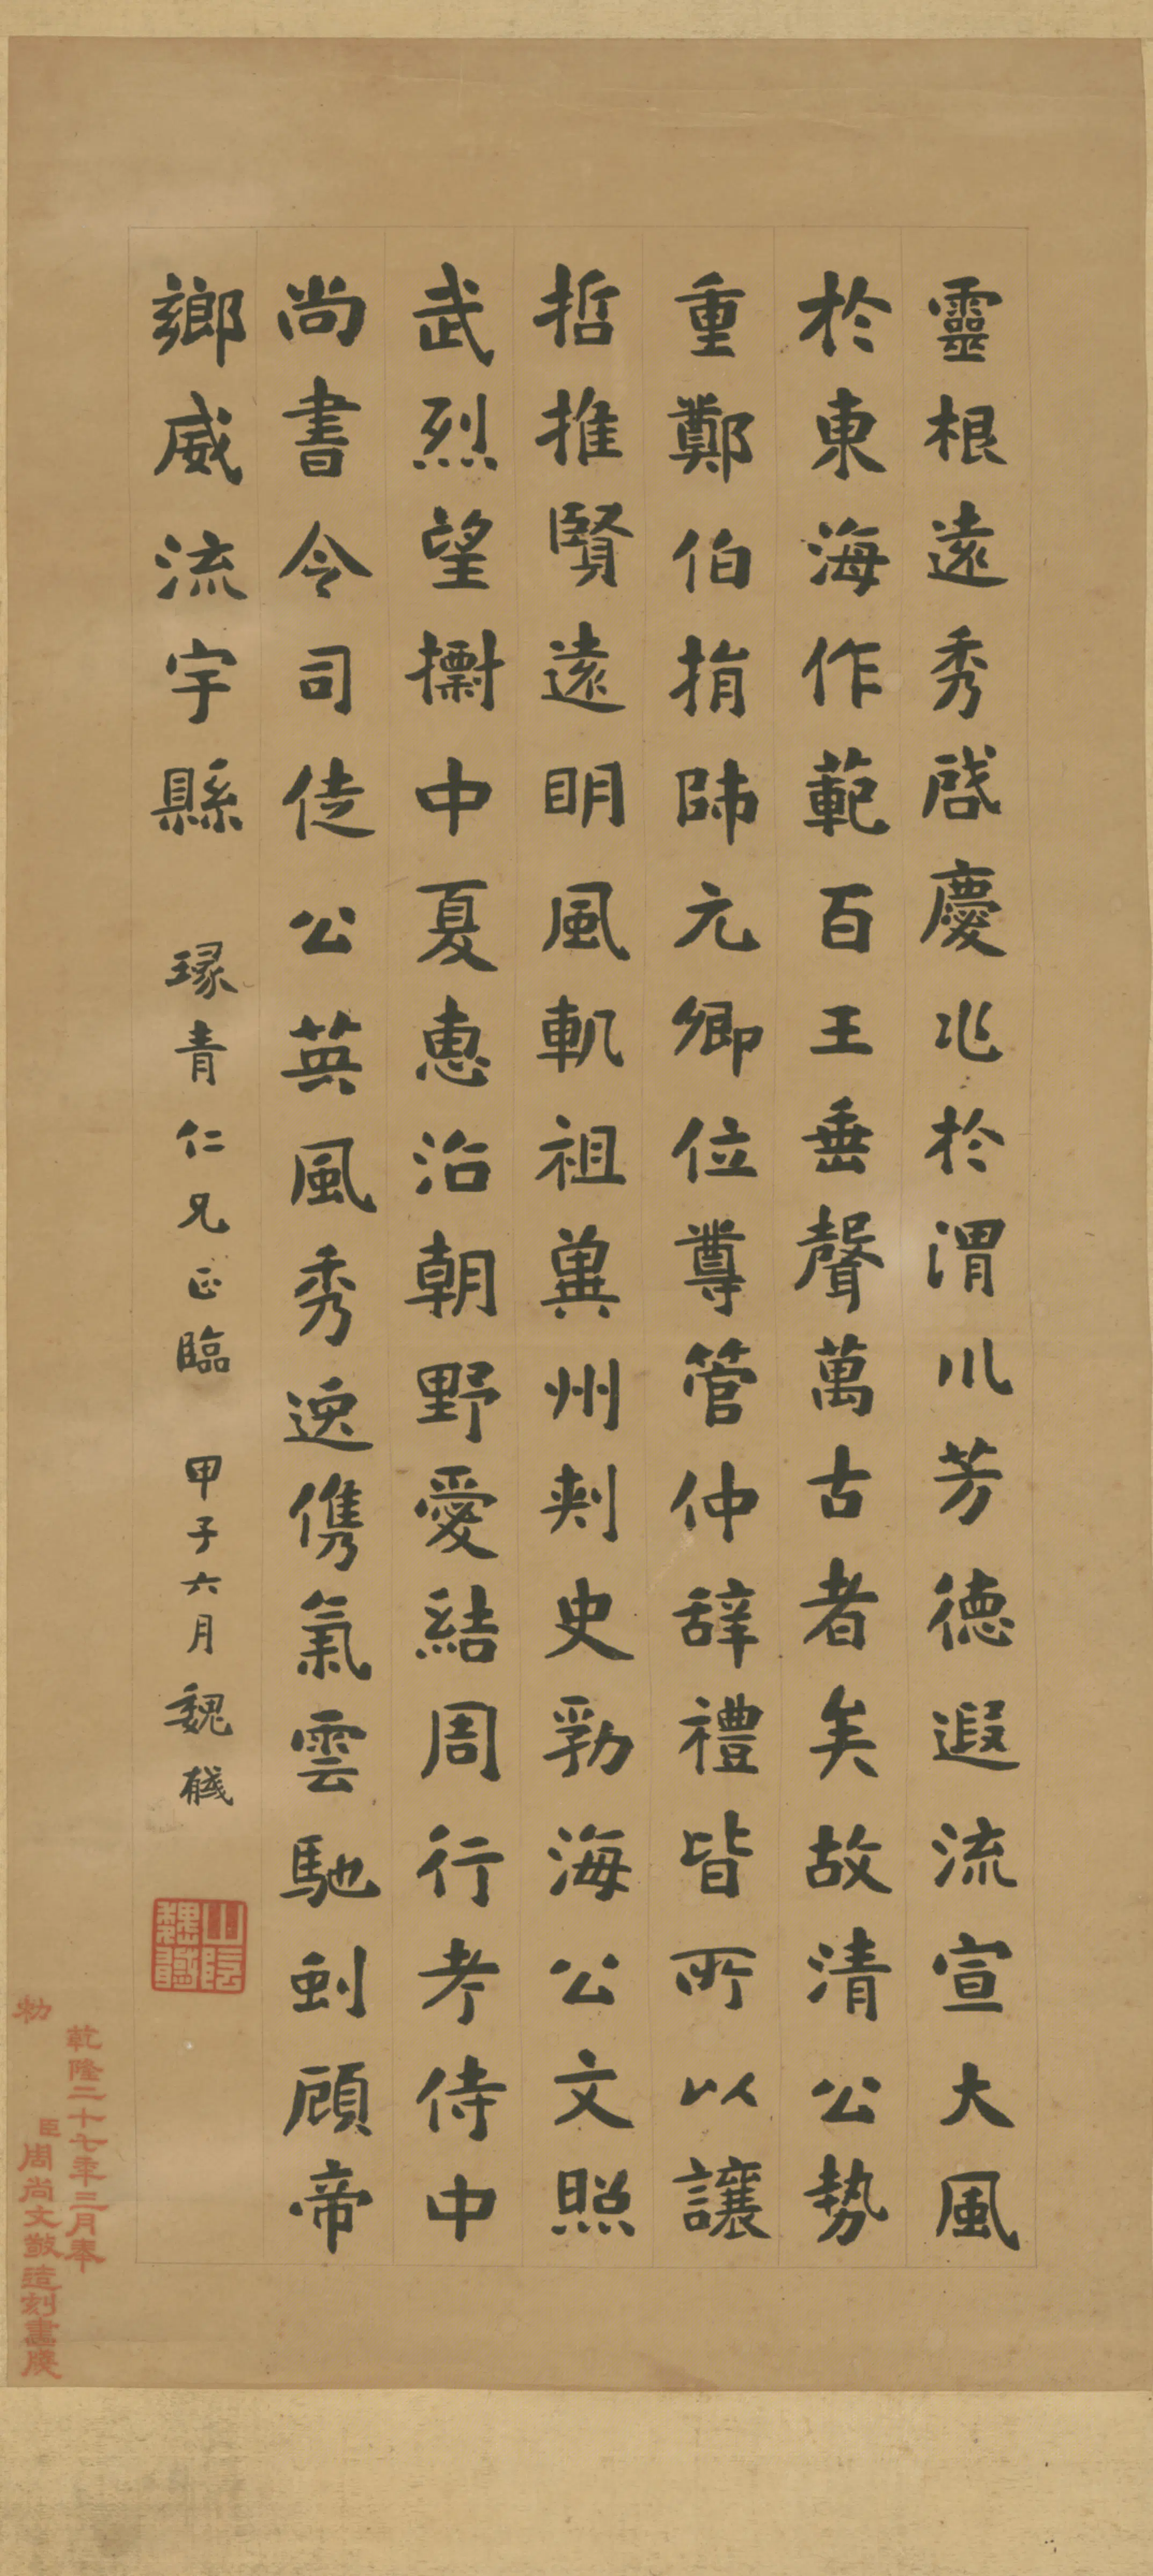 靈根遠秀啓慶兆於渭川芳德遐流宣大風
於東海作範百王垂聲萬古者矣故清公勢
重鄭伯捐師元卿位尊管仲辞禮皆所以讓
哲推賢遠明風軌祖冀州刾史勃海公文照
武烈望標中夏惠治朝野愛結周行考侍中
尚書令司徒公英風秀逸儁氣雲馳剑顧帝
鄉威流宇縣
琢青仁兄正臨
甲子六月魏戫
山陰魏戫
乾隆二十七年三月奉
勅
臣周尚文敬造刻畫牋